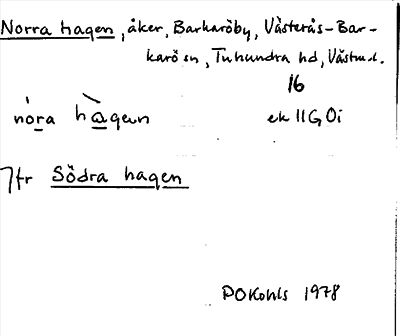 Norra hagen, åker, Barkaröby, Västerås-Bar-
karö sn, Tuhundra hd, Västml.
16
nòra hàgen
ek 11G 0i
Jfr Södra hagen
POKohls 1978